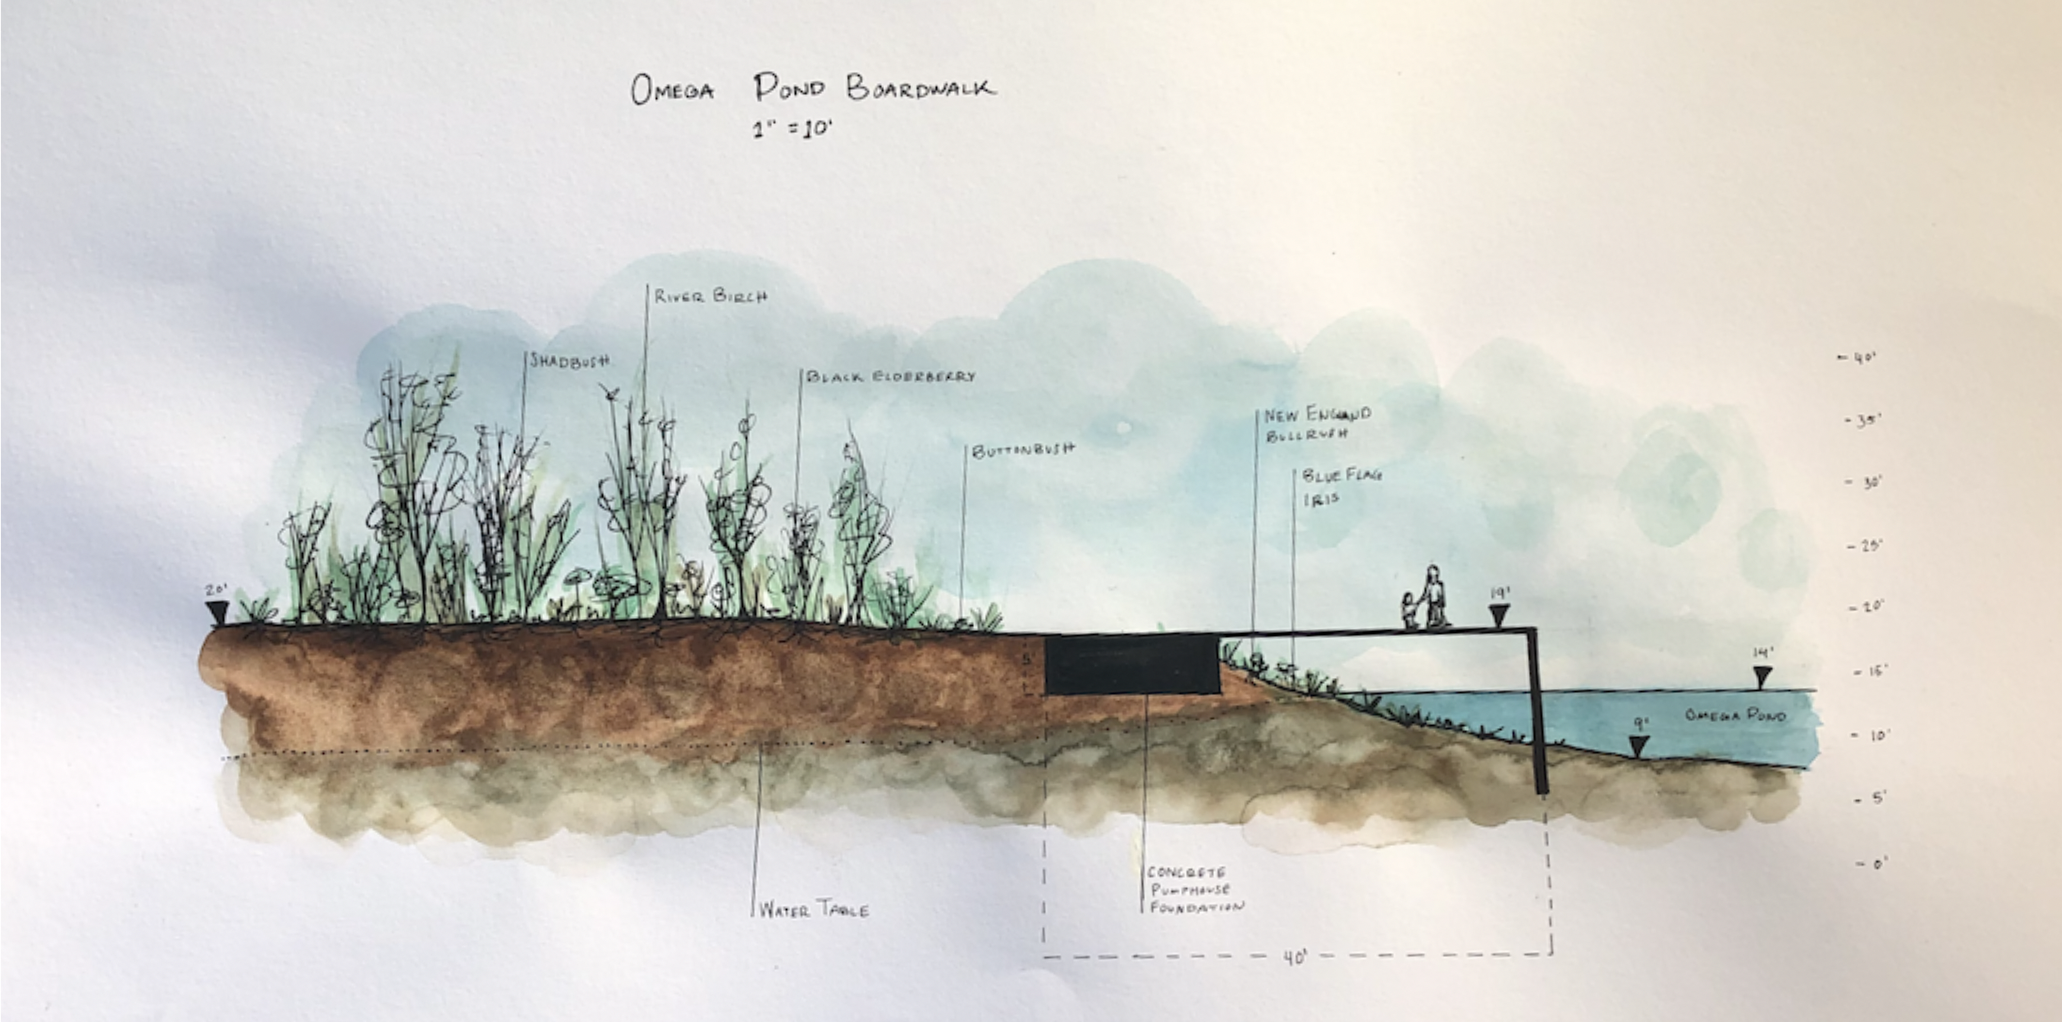 OMEGA POND BOARDWALK
1" = 10'
RIVER BIRCH
SHADBUSH
BLACK ELDERBERRY
BUTTONBUSH
NEW ENGLAND
BULLRUSH
BLUE FLAG
IRIS
40'
35'
30'
25'
20'
15'
10'
5'
0'
20'
19'
14'
5'
OMEGA POND
9'
WATER TABLE
CONCRETE
PUMPHOUSE
FOUNDATION
40'